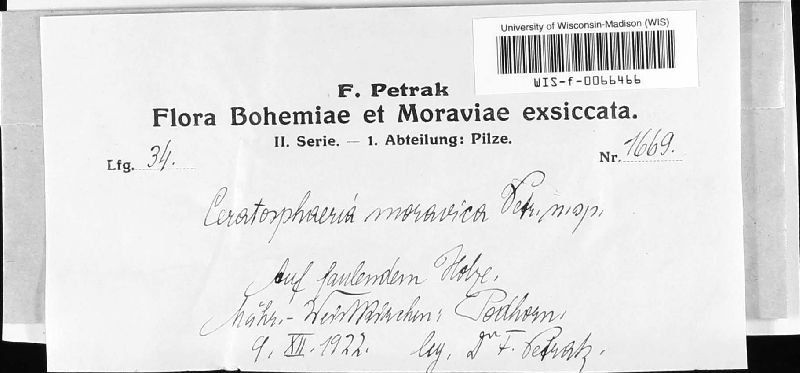 University of Wisconsin-Madison (WIS)
WIS-f-0066466
F. Petrak
Flora Bohemiae et Moraviae exsiccata.
II. Serie. — 1. Abteilung: Pilze.
Lfg. 34.
Nr. 1669.
Ceratosphaeria moravica Petr. n. sp.
Auf faulendem Holze.
Mähr.-Weisskirchen: Podhorn.
9. XII. 1922. leg. Dr F. Petrak.